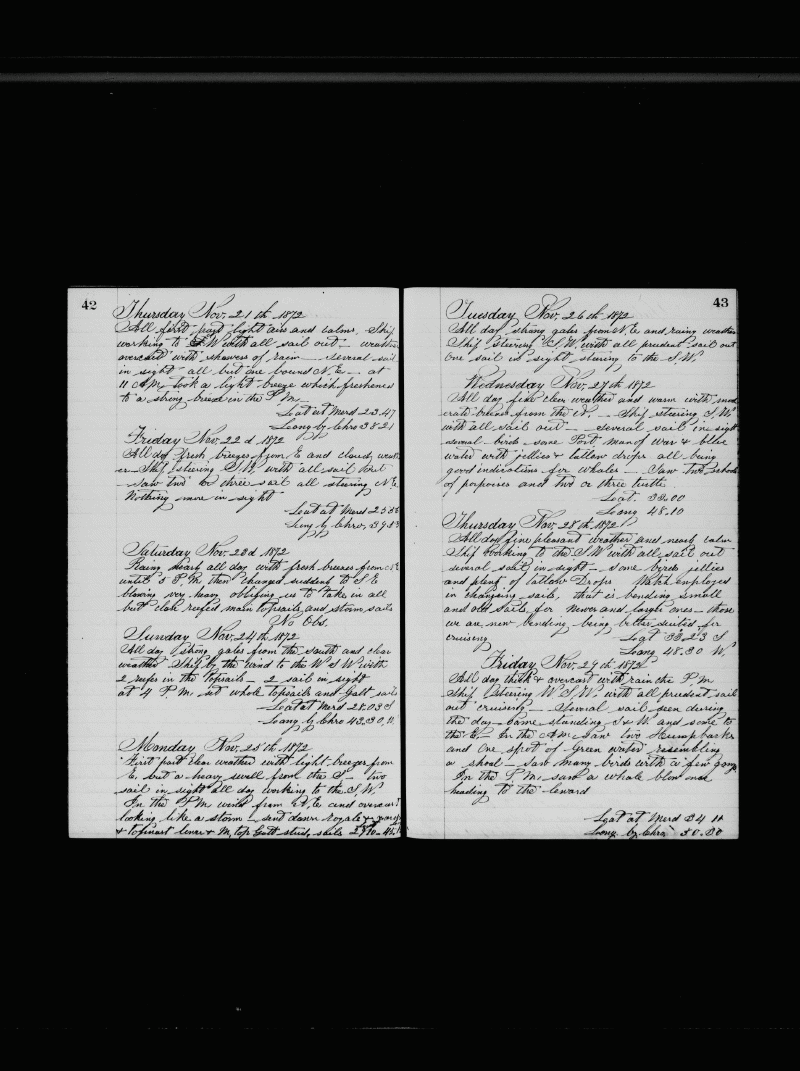 42
Thursday Nov. 21th 1872
All first part light airs and calms. Ship
working to S.W. with all sail out — weather
overcast with showers of rain — Several sail
in sight all but one bound N.E. — at
11 A.M. took a light breeze which freshened
to a strong breeze in the P.M.
Lat at Merd 23.47
Long by Chro 38.21
Friday Nov. 22d 1872
All day fresh breezes from E and cloudy weath
er — Ship steering S.W. with all sail out
Saw two or three sail all steering N.E.
Nothing more in sight
Lat at Merd 25.58
Long by Chro, 39.53
Saturday Nov. 23d 1872
Rainy nearly all day with fresh breezes from N.E
until 5 P.M. then changed suddent to S.E
blowing very heavy obliging us to take in all
but close reefed main topsails and storm sails
No Obs.
Sunday Nov. 24th 1872
All day strong gales from the South and clear
weather Ship by the wind to the W.S.W. with
2 reefs in the topsails — 2 sail in sight
at 4 P.M. set whole topsails and Gallt sails
Lat at Merd 28.03 S
Long by Chro 43.30,
Monday Nov. 25th 1872
First part clear weather with light breezes from
E. but a heavy swell from the S — two
sail in sight all day working to the S.W.
In the P.M. wind from E.N.E and overcast
looking like a storm — send down royals &
& top M, top Gallt studg sails
43
Tuesday Nov. 26th 1872
All day strong gales from N.E and rainy weather
Ship steering S.W. with all prudent sail out
One sail in sight steering to the S.W.
Wednesday Nov. 27th 1872
All day fine clear weather and warm with mod
erate breeze from the N. — Ship steering S.W.
with all sail out — Several sail in sight
some Port, man of war & blue
water with jellies & tallow drops all being
good indications for whales — Saw two schools
of porpoises and two or three turtle.
Lat. 33.00
Long 48.10
Thursday Nov. 28th 1872
All day fine pleasant weather and nearly calm
Ship working to the S.W. with all sail out
several sail in sight — some birds jellies
and plenty of tallow Drops Watch employed
in changing sails, that is bending small
and old sails for newer and larger ones — those
we are now bending being better suited for
cruising
Lat 33.23 S
Long 48.30 W.
Friday Nov. 29th 1872
All day thick & overcast with rain the P.M.
Ship steering W.S.W. with all prudent sail
out cruising — Several sail seen during
the day — Some standing S & W and some to
the E — In the A.M. Saw two Humpbacks
and One spot of Green water resembling
a shoal — saw many birds with a few
In the P.M. saw a whale blow once
heading to the leward
Lat at Merd 34 11
Long. by Chro 50.30